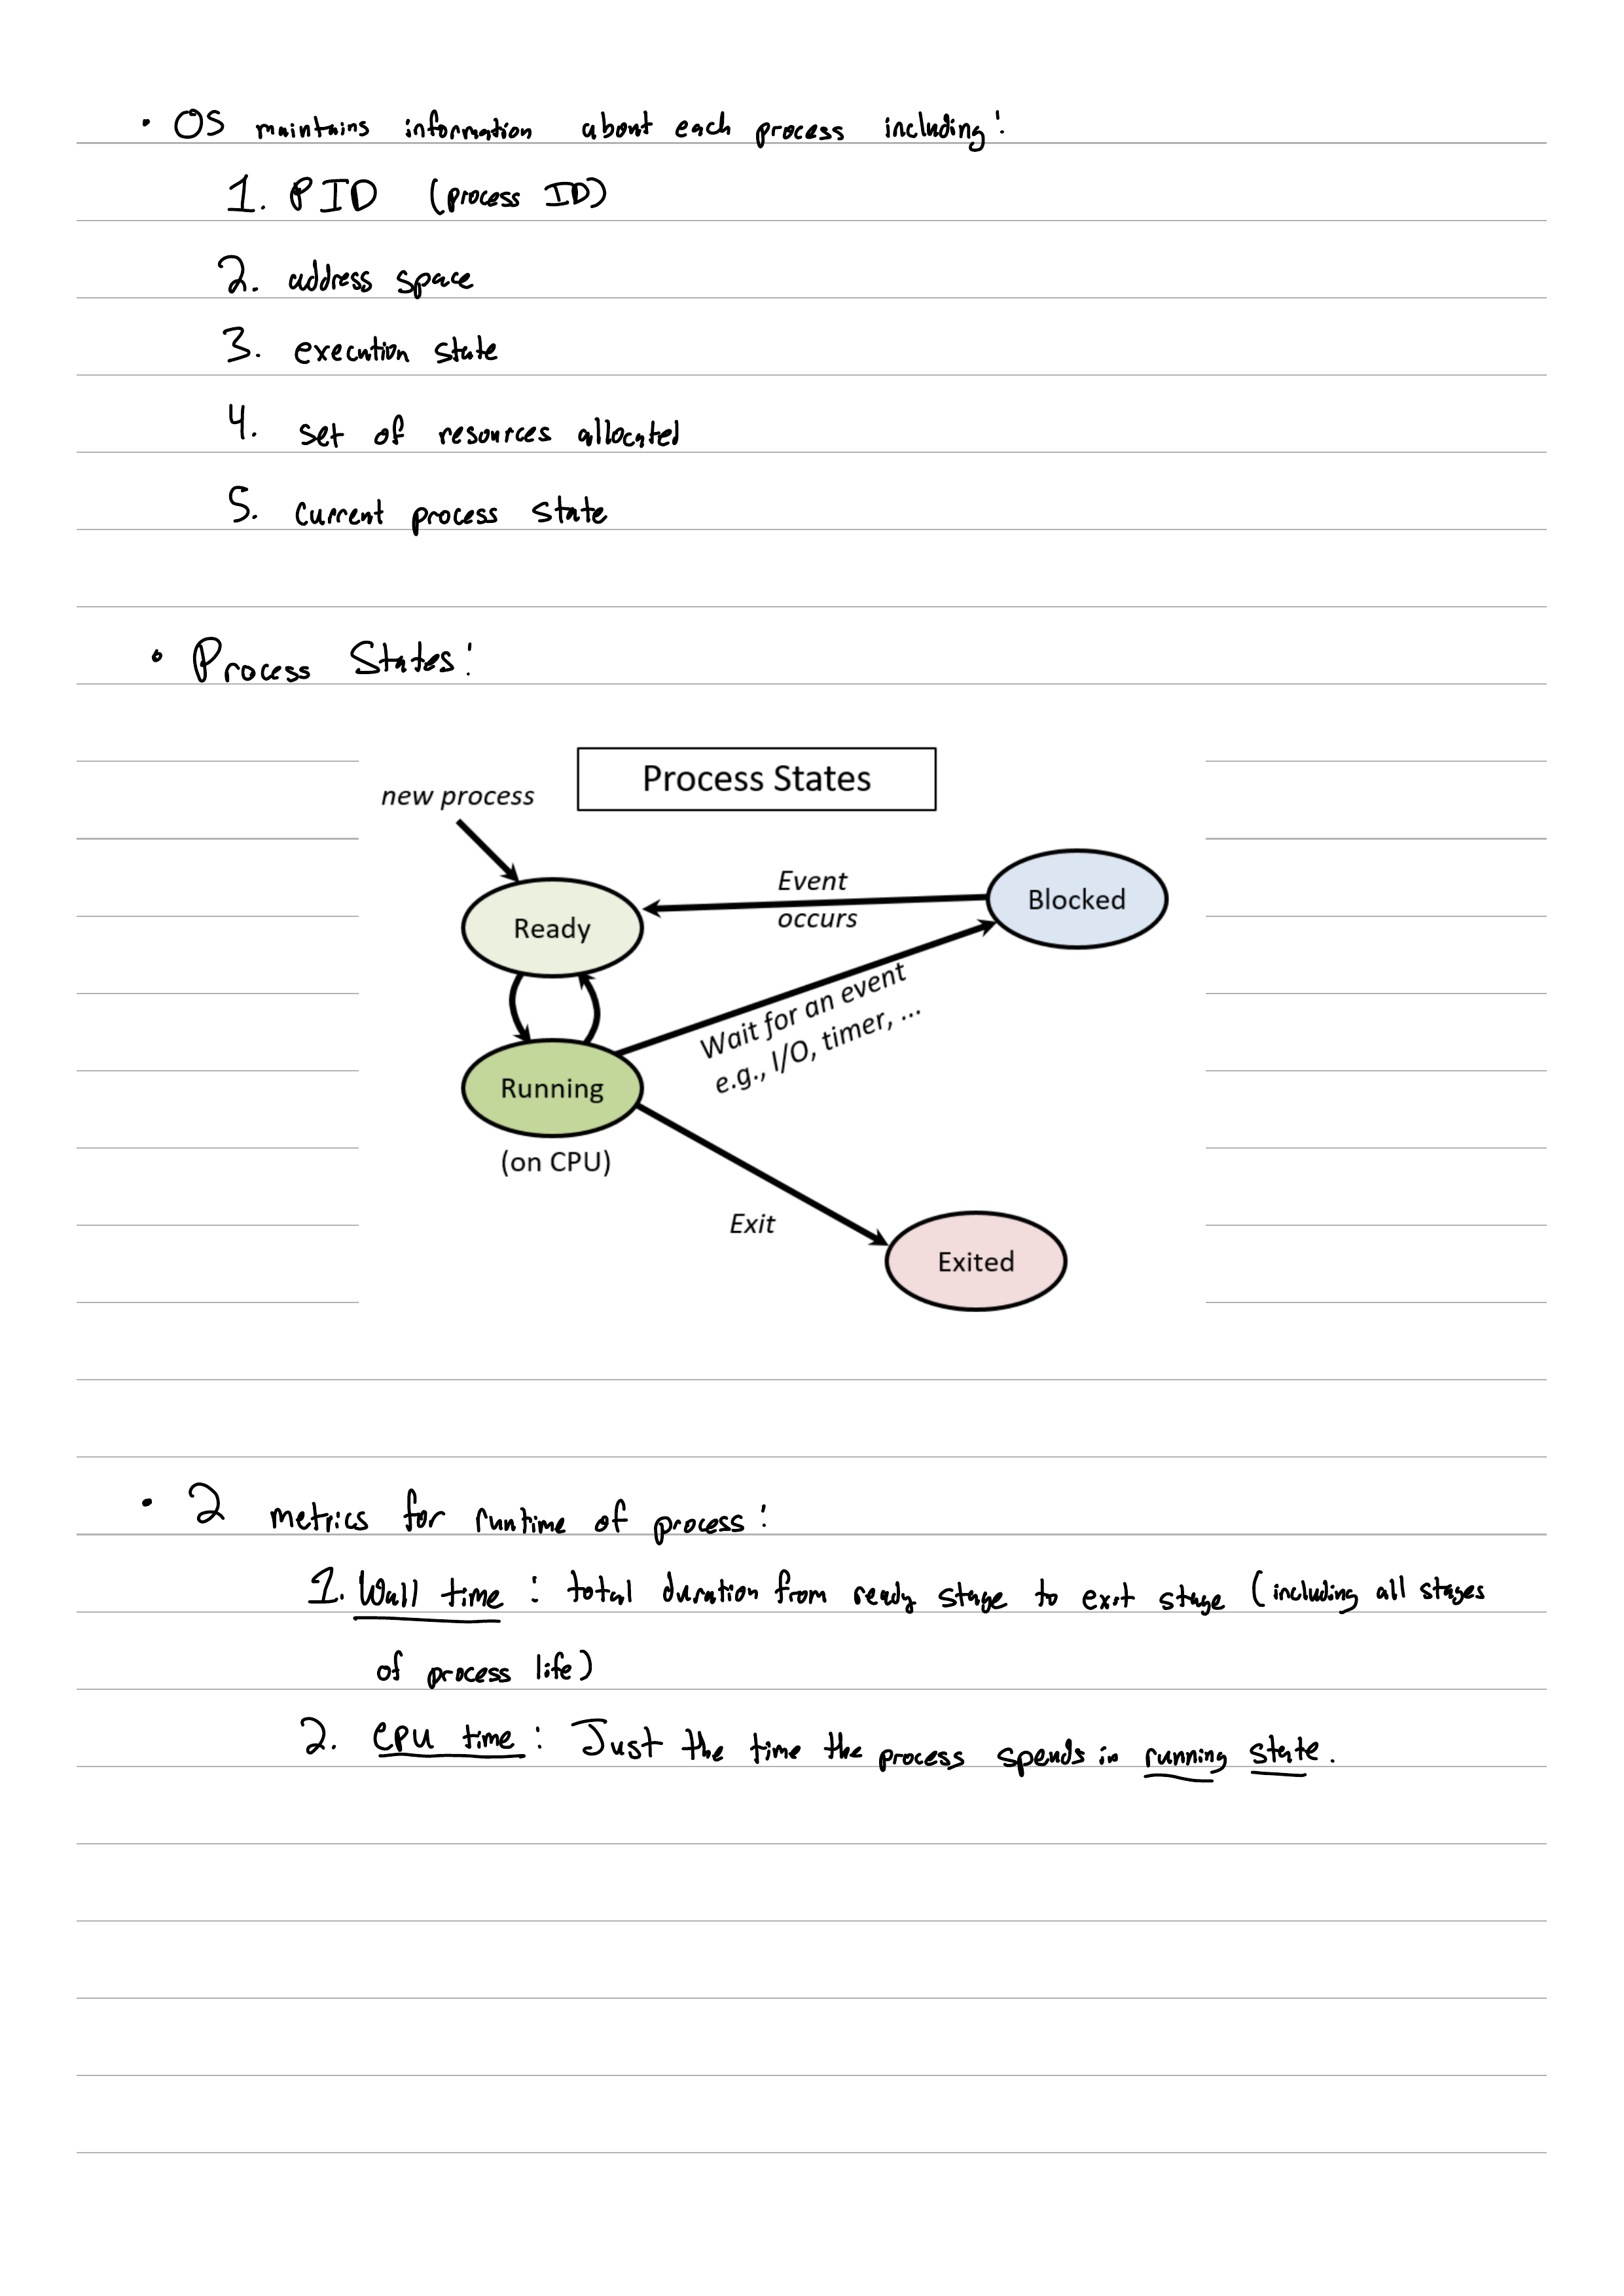 • OS maintains information about each process including:
1. PID (process ID)
2. address space
3. execution state
4. set of resources allocated
5. current process state
• Process States:
Process States
new process
Event
occurs
Blocked
Ready
Wait for an event
e.g., I/O, timer, ...
Running
(on CPU)
Exit
Exited
• 2 metrics for runtime of process:
1. Wall time : total duration from ready stage to exit stage (including all stages
of process life)
2. CPU time : Just the time the process spends in running state.